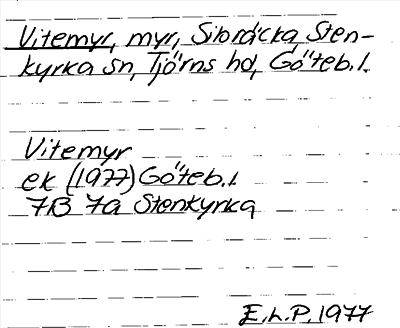 Vitemyr, myr, Sibräcka, Sten-
kyrka sn, Tjörns hd, Göteb. l.
Vitemyr
ek (1977) Göteb. l.
7B 7a Stenkyrka
E.L.P. 1977